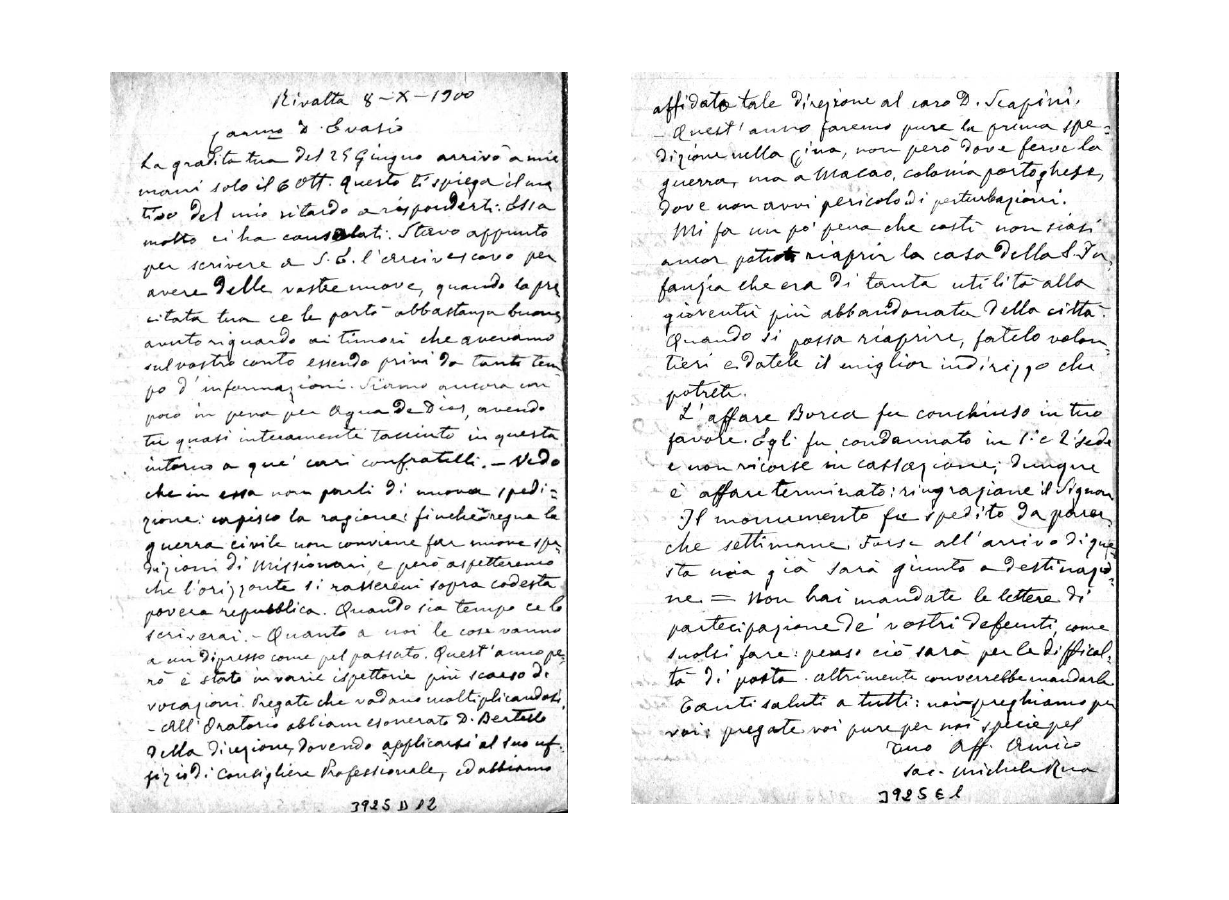 Rivalta 8-X-1900
Carmo D. Evasio
La gradita tua del 25 Giugno arrivò a mie
mani solo il 6 Ott. Questo ti spiega il mo
tivo del mio ritardo a risponderti: Essa
molto ci ha consolati. Stavo appunto
per scrivere a S. E. l'arcivescovo per
avere delle vostre nuove, quando la pre
citata tua ce le portò abbastanza buone
avuto riguardo ai timori che avevamo
sul vostro conto essendo privi da tanto tem
po d'informazioni. Siamo ancora un
poco in pena per Agua de Dios, avendo
tu quasi interamente taciuto in questa
intorno a que' cari confratelli. - Vedo
che in essa non parli di nuova spedi=
zione: capisco la ragione: finchè regna la
guerra civile non conviene far nuove spe
dizioni di Missionari, e però aspetteremo
che l'orizzonte si rassereni sopra codesta
povera repubblica. Quando sia tempo ce lo
scriverai. - Quanto a noi le cose vanno
a un dipresso come pel passato. Quest'anno pe
rò è stato in varie ispettorie più scarso di
vocazioni. Pregate che vadano moltiplicandosi.
- All'Oratorio abbiam esonerato D. Bertello
della direzione, dovendo applicarsi al suo uf-
fizio di Consigliere Professionale, ed abbiamo
3925 D 12
affidato tale direzione al caro D. Scapini.
- Quest'anno faremo pure la prima spe=
dizione nella Cina, non però dove ferve la
guerra, ma a Macao, colonia portoghese,
dove non avvi pericolo di perturbazioni.
Mi fa un po' pena che costì non siasi
ancor potuto riaprir la casa della S. In
fanzia che era di tanta utilità alla
gioventù più abbandonata della città.
Quando si possa riaprire, fatelo volon
tieri e datele il miglior indirizzo che
potrete.
L'affare Borea fu conchiuso in tuo
favore. Egli fu condannato in 1ª e 2ª sede
e non ricorse in cassazione; dunque
è affare terminato: ringraziane il Signor
Il monumento fu spedito da parec
che settimane. Forse all'arrivo di que
sta mia già sarà giunto a destinazio
ne. = Non hai mandate le lettere di
partecipazione de' vostri defunti, come
suolsi fare: penso ciò sarà per le diffical,
tà di posta. altrimente converrebbe mandarle
Tanti saluti a tutti: noi preghiamo per
voi; pregate voi pure per noi specie pel
Tuo Aff. Amico
Sac. Michele Rua
3925 E 1